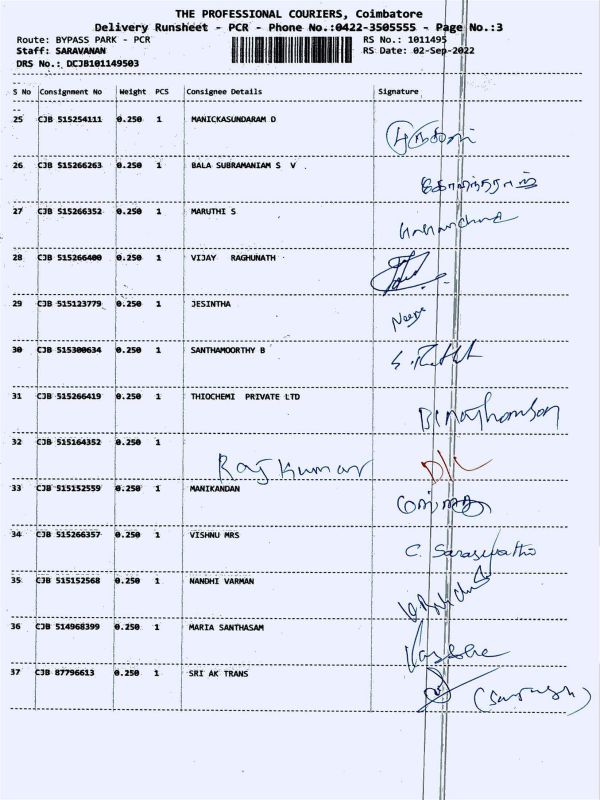 THE PROFESSIONAL COURIERS, Coimbatore
Delivery Runsheet - PCR - Phone No.:0422-3505555 - Page No.:3
Route: BYPASS PARK - PCR RS No.: 1011495
Staff: SARAVANAN RS Date: 02-Sep-2022
DRS No.: DCJB101149503
S No Consignment No Weight PCS Consignee Details Signature
25 CJB 515254111 0.250 1 MANICKASUNDARAM D
26 CJB 515266263 0.250 1 BALA SUBRAMANIAM S V
27 CJB 515266352 0.250 1 MARUTHI S
28 CJB 515266400 0.250 1 VIJAY RAGHUNATH
29 CJB 515123779 0.250 1 JESINTHA
30 CJB 515300634 0.250 1 SANTHAMOORTHY B
31 CJB 515266419 0.250 1 THIOCHEMI PRIVATE LTD
32 CJB 515164352 0.250 1 Raj Kumar
33 CJB 515152559 0.250 1 MANIKANDAN
34 CJB 515266357 0.250 1 VISHNU MRS C. Saraswathi
35 CJB 515152568 0.250 1 NANDHI VARMAN
36 CJB 514968399 0.250 1 MARIA SANTHASAM
37 CJB 87796613 0.250 1 SRI AK TRANS